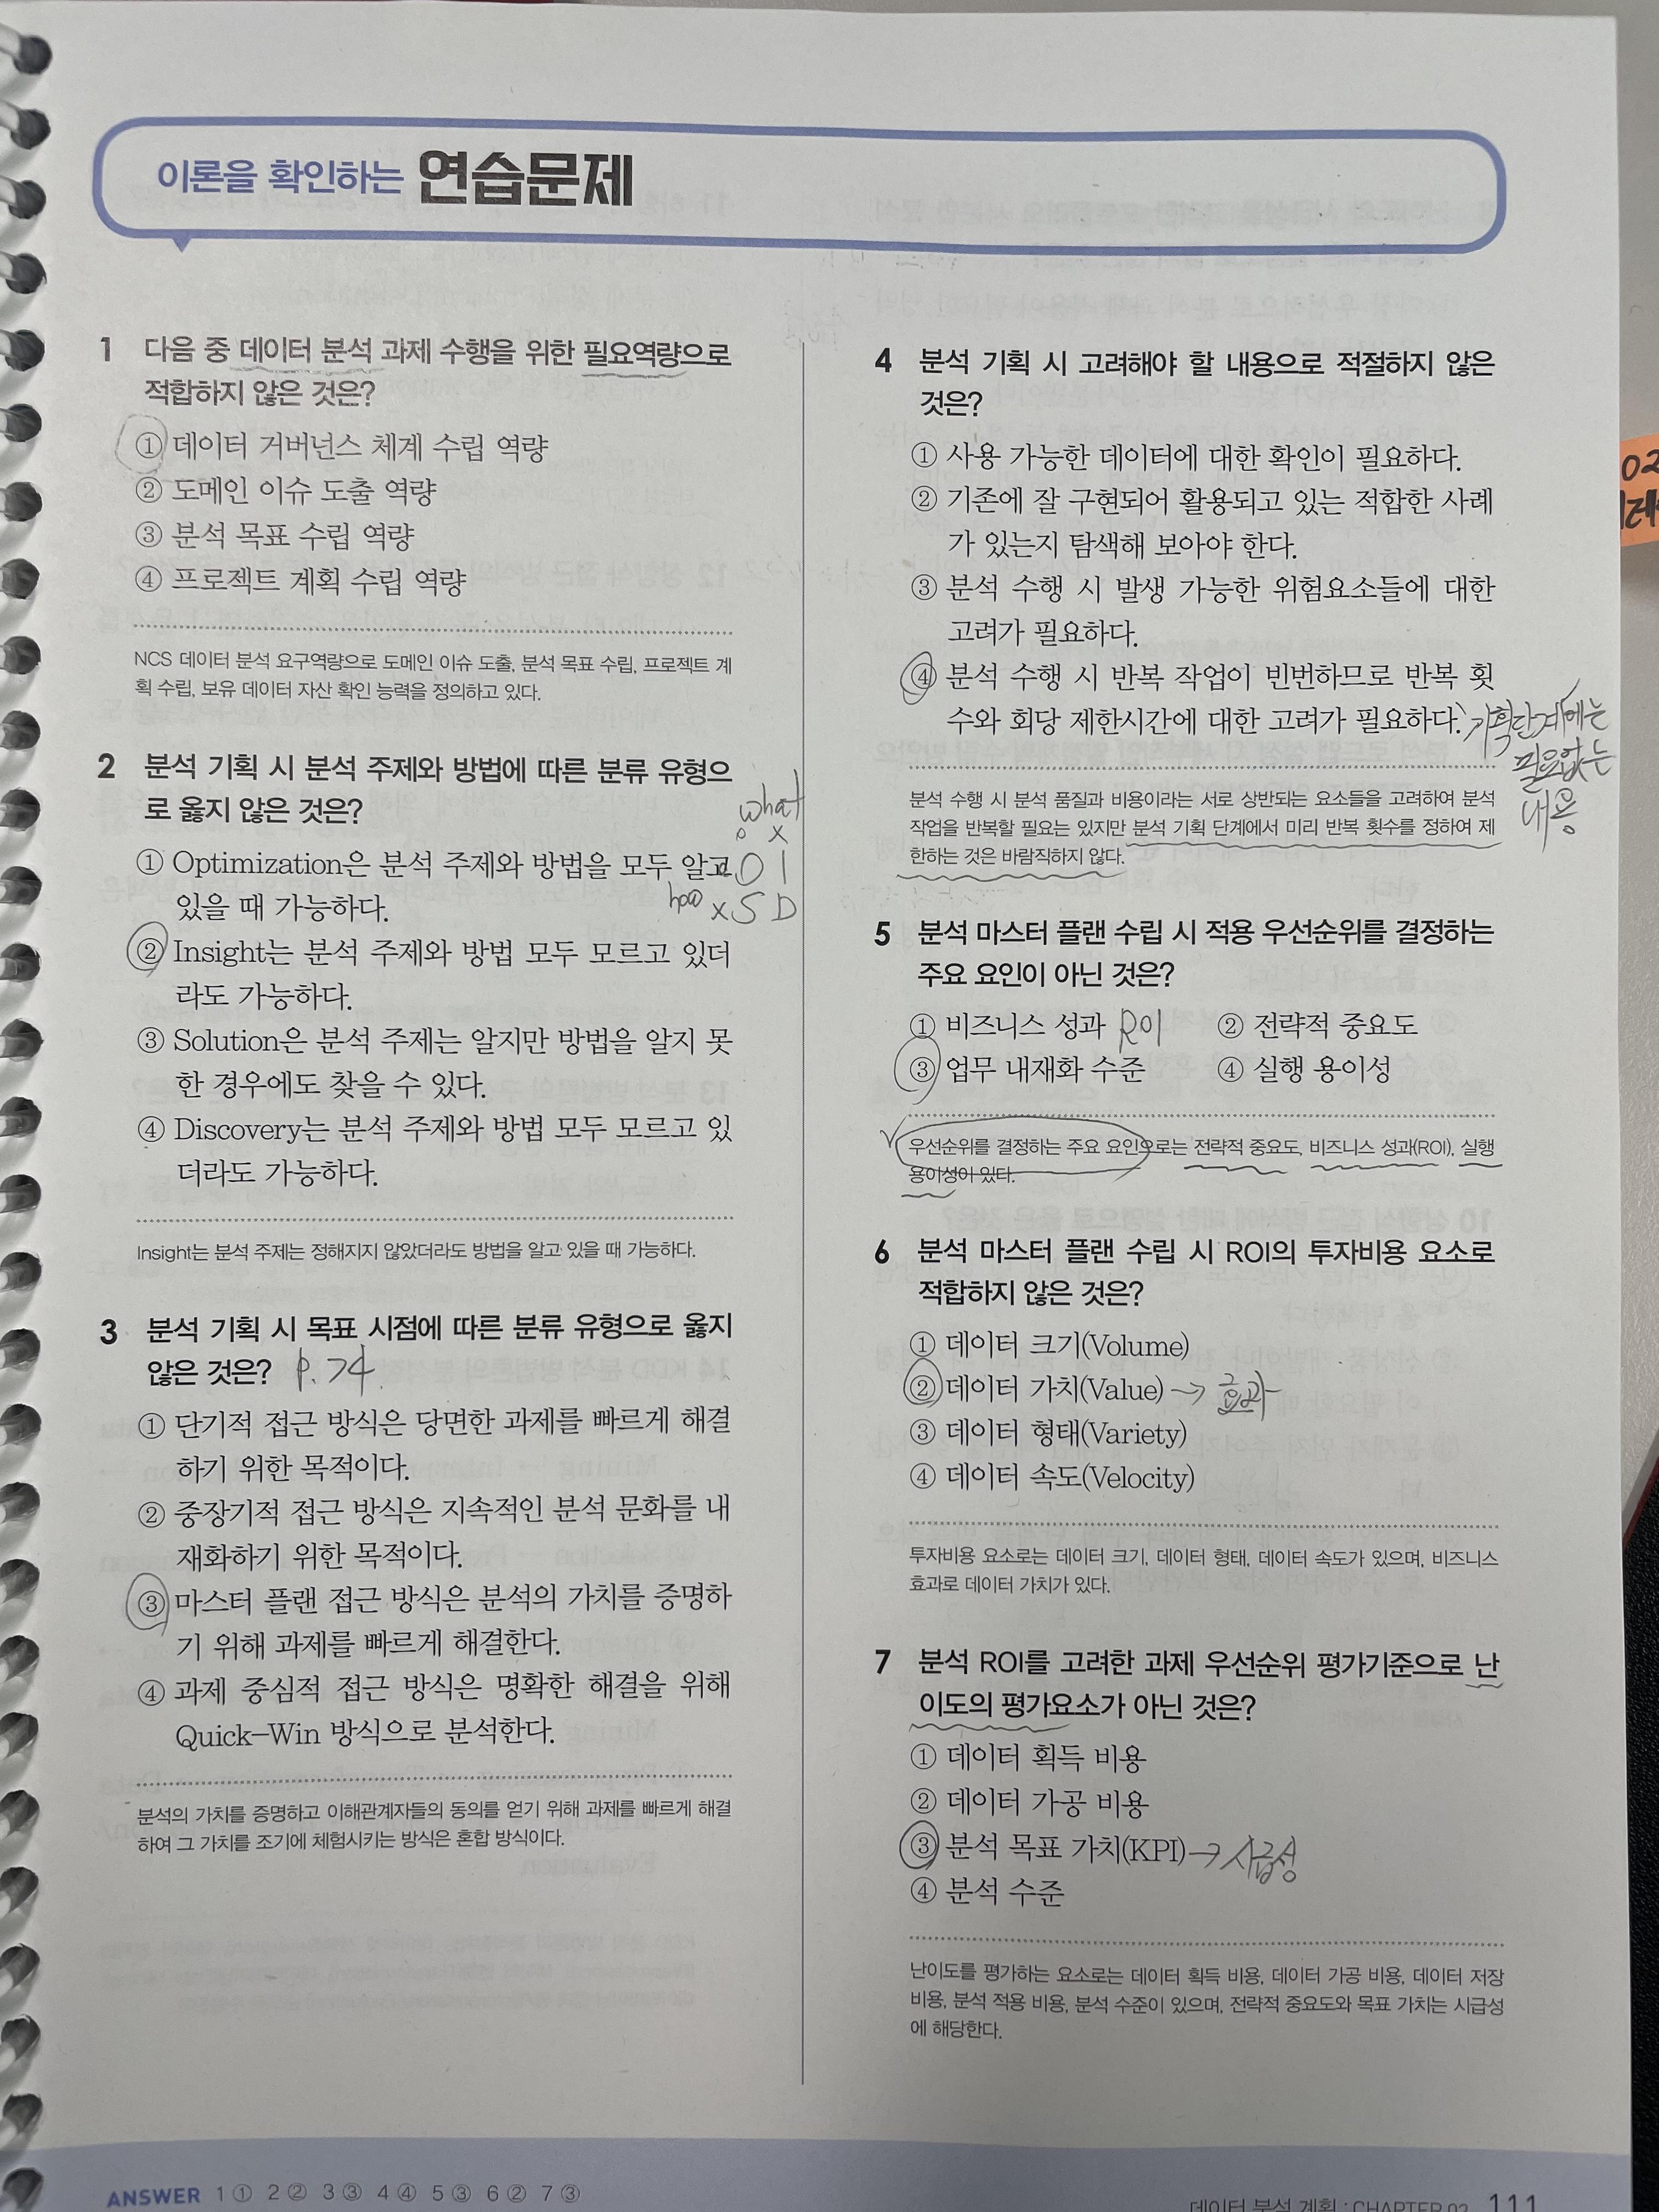 이론을 확인하는 연습문제
1 다음 중 데이터 분석 과제 수행을 위한 필요역량으로
적합하지 않은 것은?
① 데이터 거버넌스 체계 수립 역량
② 도메인 이슈 도출 역량
③ 분석 목표 수립 역량
④ 프로젝트 계획 수립 역량
NCS 데이터 분석 요구역량으로 도메인 이슈 도출, 분석 목표 수립, 프로젝트 계
획 수립, 보유 데이터 자산 확인 능력을 정의하고 있다.
2 분석 기획 시 분석 주제와 방법에 따른 분류 유형으
로 옳지 않은 것은?
what
o x
① Optimization은 분석 주제와 방법을 모두 알고
O I
있을 때 가능하다.
how x S D
② Insight는 분석 주제와 방법 모두 모르고 있더
라도 가능하다.
③ Solution은 분석 주제는 알지만 방법을 알지 못
한 경우에도 찾을 수 있다.
④ Discovery는 분석 주제와 방법 모두 모르고 있
더라도 가능하다.
Insight는 분석 주제는 정해지지 않았더라도 방법을 알고 있을 때 가능하다.
3 분석 기획 시 목표 시점에 따른 분류 유형으로 옳지
않은 것은? P.74
① 단기적 접근 방식은 당면한 과제를 빠르게 해결
하기 위한 목적이다.
② 중장기적 접근 방식은 지속적인 분석 문화를 내
재화하기 위한 목적이다.
③ 마스터 플랜 접근 방식은 분석의 가치를 증명하
기 위해 과제를 빠르게 해결한다.
④ 과제 중심적 접근 방식은 명확한 해결을 위해
Quick-Win 방식으로 분석한다.
분석의 가치를 증명하고 이해관계자들의 동의를 얻기 위해 과제를 빠르게 해결
하여 그 가치를 조기에 체험시키는 방식은 혼합 방식이다.
4 분석 기획 시 고려해야 할 내용으로 적절하지 않은
것은?
① 사용 가능한 데이터에 대한 확인이 필요하다.
② 기존에 잘 구현되어 활용되고 있는 적합한 사례
가 있는지 탐색해 보아야 한다.
③ 분석 수행 시 발생 가능한 위험요소들에 대한
고려가 필요하다.
④ 분석 수행 시 반복 작업이 빈번하므로 반복 횟
수와 회당 제한시간에 대한 고려가 필요하다.
기획단계에는
필요없는
내용
분석 수행 시 분석 품질과 비용이라는 서로 상반되는 요소들을 고려하여 분석
작업을 반복할 필요는 있지만 분석 기획 단계에서 미리 반복 횟수를 정하여 제
한하는 것은 바람직하지 않다.
5 분석 마스터 플랜 수립 시 적용 우선순위를 결정하는
주요 요인이 아닌 것은?
① 비즈니스 성과 ROI ② 전략적 중요도
③ 업무 내재화 수준 ④ 실행 용이성
우선순위를 결정하는 주요 요인으로는 전략적 중요도, 비즈니스 성과(ROI), 실행
용이성이 있다.
6 분석 마스터 플랜 수립 시 ROI의 투자비용 요소로
적합하지 않은 것은?
① 데이터 크기(Volume)
② 데이터 가치(Value) → 효과
③ 데이터 형태(Variety)
④ 데이터 속도(Velocity)
투자비용 요소로는 데이터 크기, 데이터 형태, 데이터 속도가 있으며, 비즈니스
효과로 데이터 가치가 있다.
7 분석 ROI를 고려한 과제 우선순위 평가기준으로 난
이도의 평가요소가 아닌 것은?
① 데이터 획득 비용
② 데이터 가공 비용
③ 분석 목표 가치(KPI) → 시급성
④ 분석 수준
난이도를 평가하는 요소로는 데이터 획득 비용, 데이터 가공 비용, 데이터 저장
비용, 분석 적용 비용, 분석 수준이 있으며, 전략적 중요도와 목표 가치는 시급성
에 해당한다.
02
ANSWER 1 ① 2 ② 3 ③ 4 ④ 5 ③ 6 ② 7 ③
데이터 분석 계획 : CHAPTER 02 111